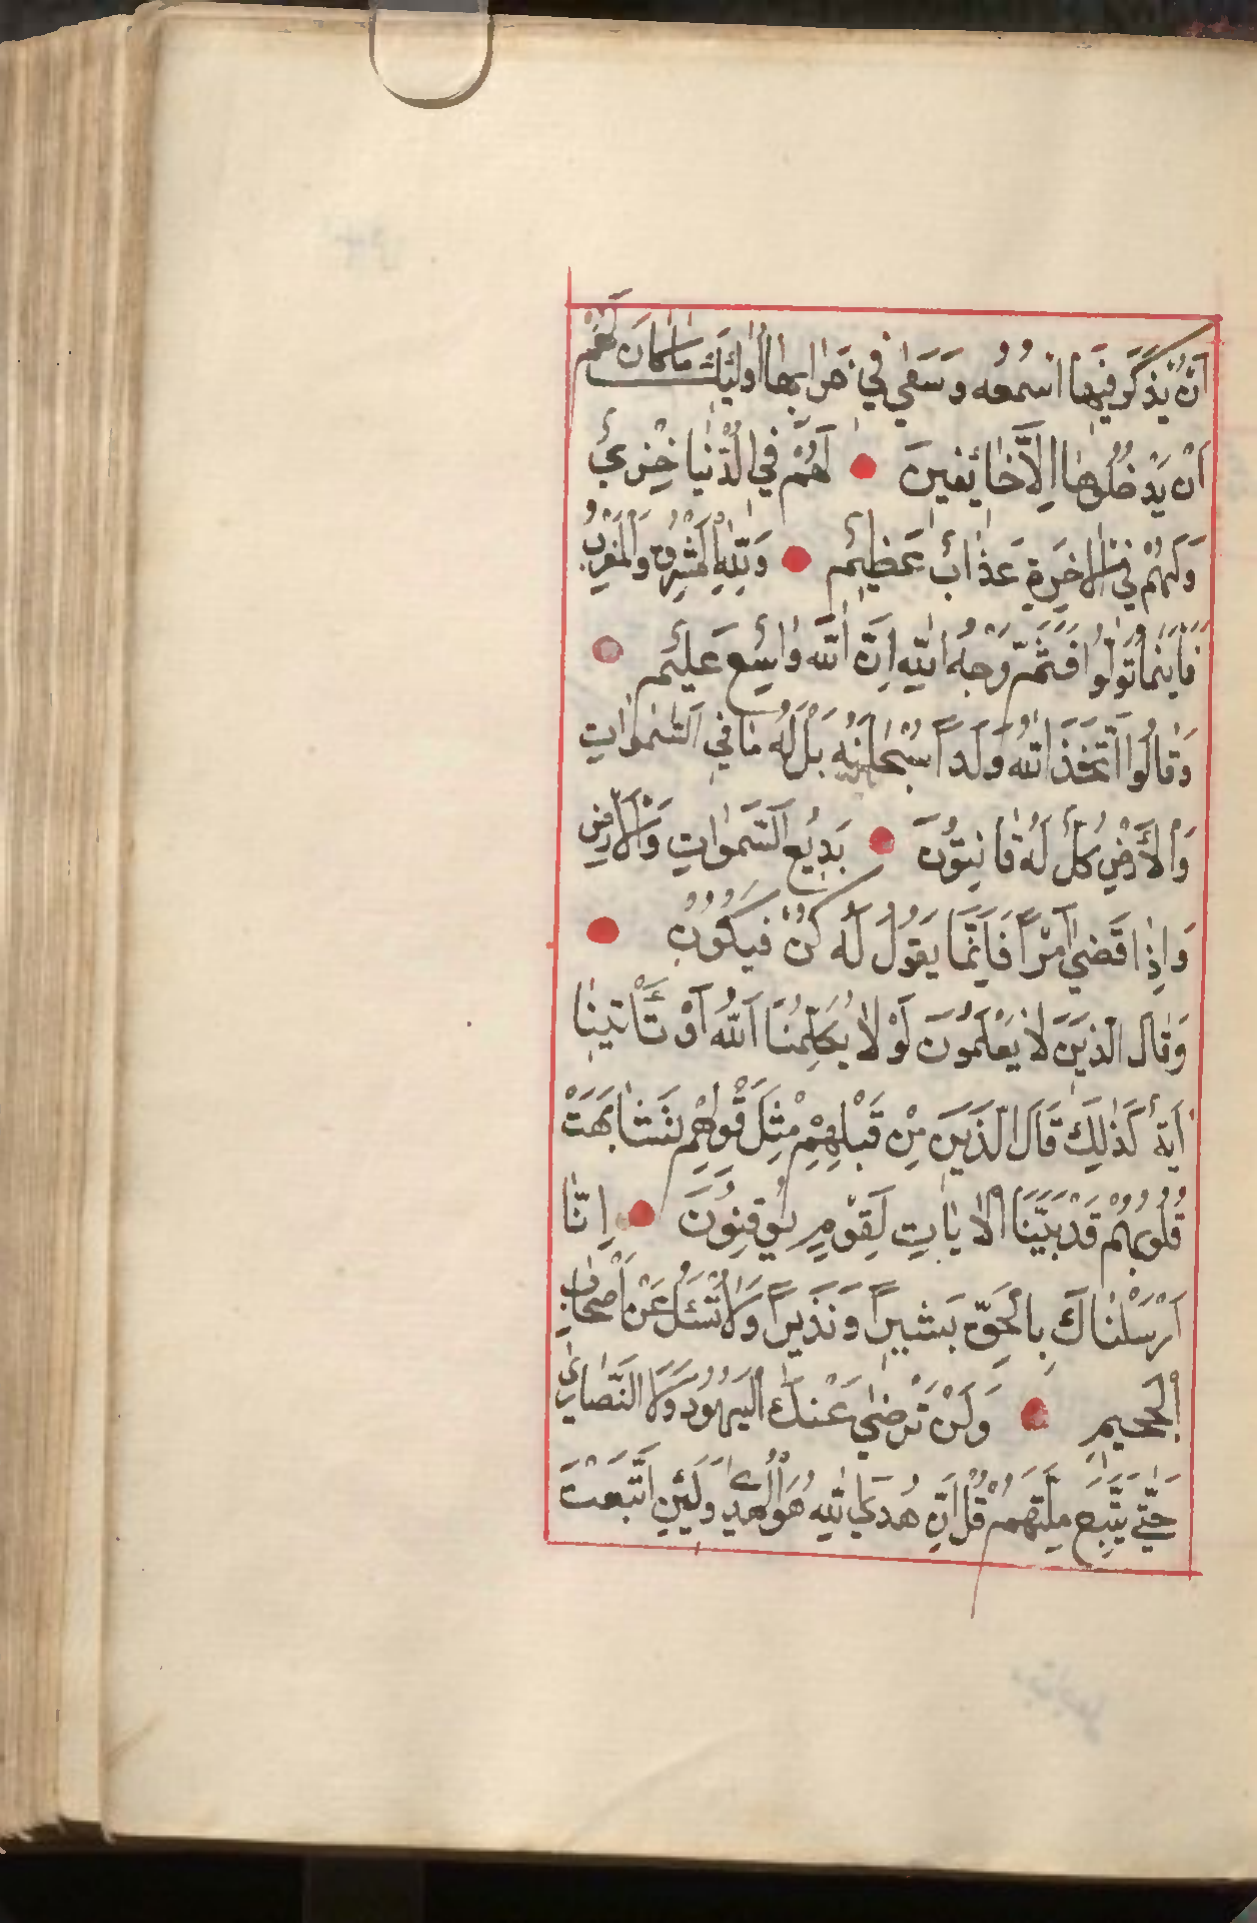 اَنْ يُذْكَرَ فِيهَا اسْمُهُ وَسَعٰى فِي خَرَابِهَا اُولٰئِكَ مَا كَانَ لَهُمْ
اَنْ يَدْخُلُوهَا اِلاَّ خَائِفِينَ لَهُمْ فِي الدُّنْيَا خِزْيٌ
وَلَهُمْ فِي الْاٰخِرَةِ عَذَابٌ عَظِيمٌ وَلِلّٰهِ الْمَشْرِقُ وَالْمَغْرِبُ
فَاَيْنَمَا تُوَلُّوا فَثَمَّ وَجْهُ اللّٰهِ اِنَّ اللّٰهَ وَاسِعٌ عَلِيمٌ
وَقَالُوا اتَّخَذَ اللّٰهُ وَلَداً سُبْحَانَهُ بَلْ لَهُ مَا فِي السَّمٰوَاتِ
وَالْاَرْضِ كُلٌّ لَهُ قَانِتُونَ بَدِيعُ السَّمٰوَاتِ وَالْاَرْضِ
وَاِذَا قَضٰى اَمْراً فَاِنَّمَا يَقُولُ لَهُ كُنْ فَيَكُونُ
وَقَالَ الَّذِينَ لَا يَعْلَمُونَ لَوْلَا يُكَلِّمُنَا اللّٰهُ اَوْ تَأْتِينَا
اٰيَةٌ كَذٰلِكَ قَالَ الَّذِينَ مِنْ قَبْلِهِمْ مِثْلَ قَوْلِهِمْ تَشَابَهَتْ
قُلُوبُهُمْ قَدْ بَيَّنَّا الْاٰيَاتِ لِقَوْمٍ يُوقِنُونَ اِنَّا
اَرْسَلْنَاكَ بِالْحَقِّ بَشِيراً وَنَذِيراً وَلَا تُسْئَلُ عَنْ اَصْحَابِ
الْجَحِيمِ وَلَنْ تَرْضٰى عَنْكَ الْيَهُودُ وَلَا النَّصَارٰى
حَتّٰى تَتَّبِعَ مِلَّتَهُمْ قُلْ اِنَّ هُدَى اللّٰهِ هُوَ الْهُدٰى وَلَئِنِ اتَّبَعْتَ